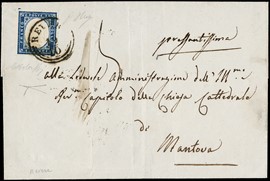 pressantissima
alla Lodevole Amministrazione dell' M.
Rev. Capitolo della Chiesa Cattedrale
di
Mantova